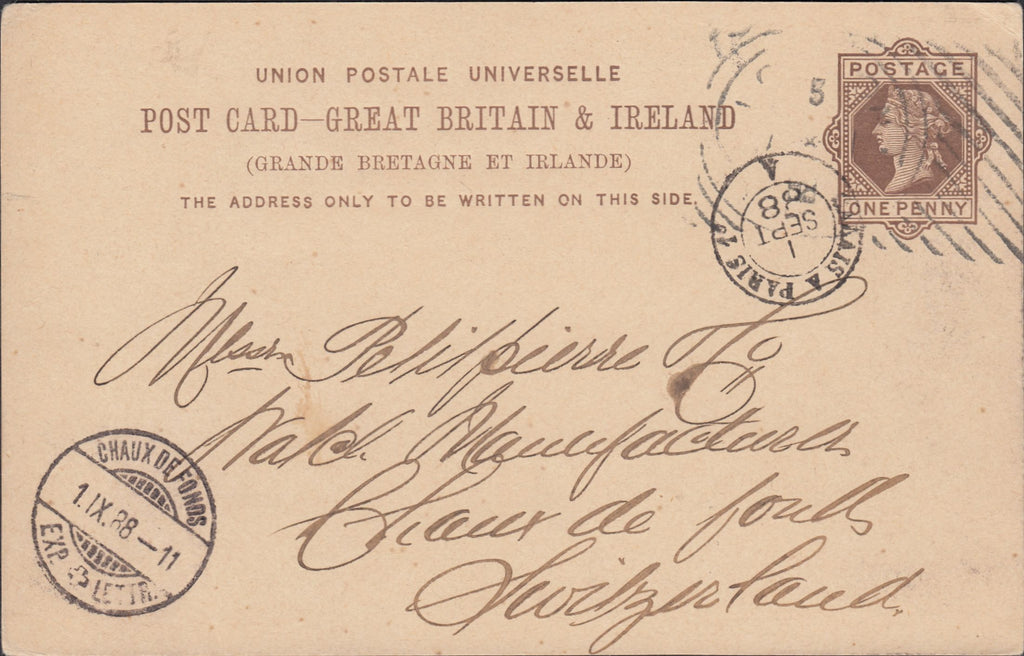 UNION POSTALE UNIVERSELLE
POST CARD—GREAT BRITAIN & IRELAND
(GRANDE BRETAGNE ET IRLANDE)
THE ADDRESS ONLY TO BE WRITTEN ON THIS SIDE.
POSTAGE
ONE PENNY
5
A PARIS
1
SEPT
88
Messrs Petitpierre
Watch Manufacturers
Chaux de fonds
Switzerland
CHAUX DE FONDS
1.IX.88—11
EXP. LETTR.